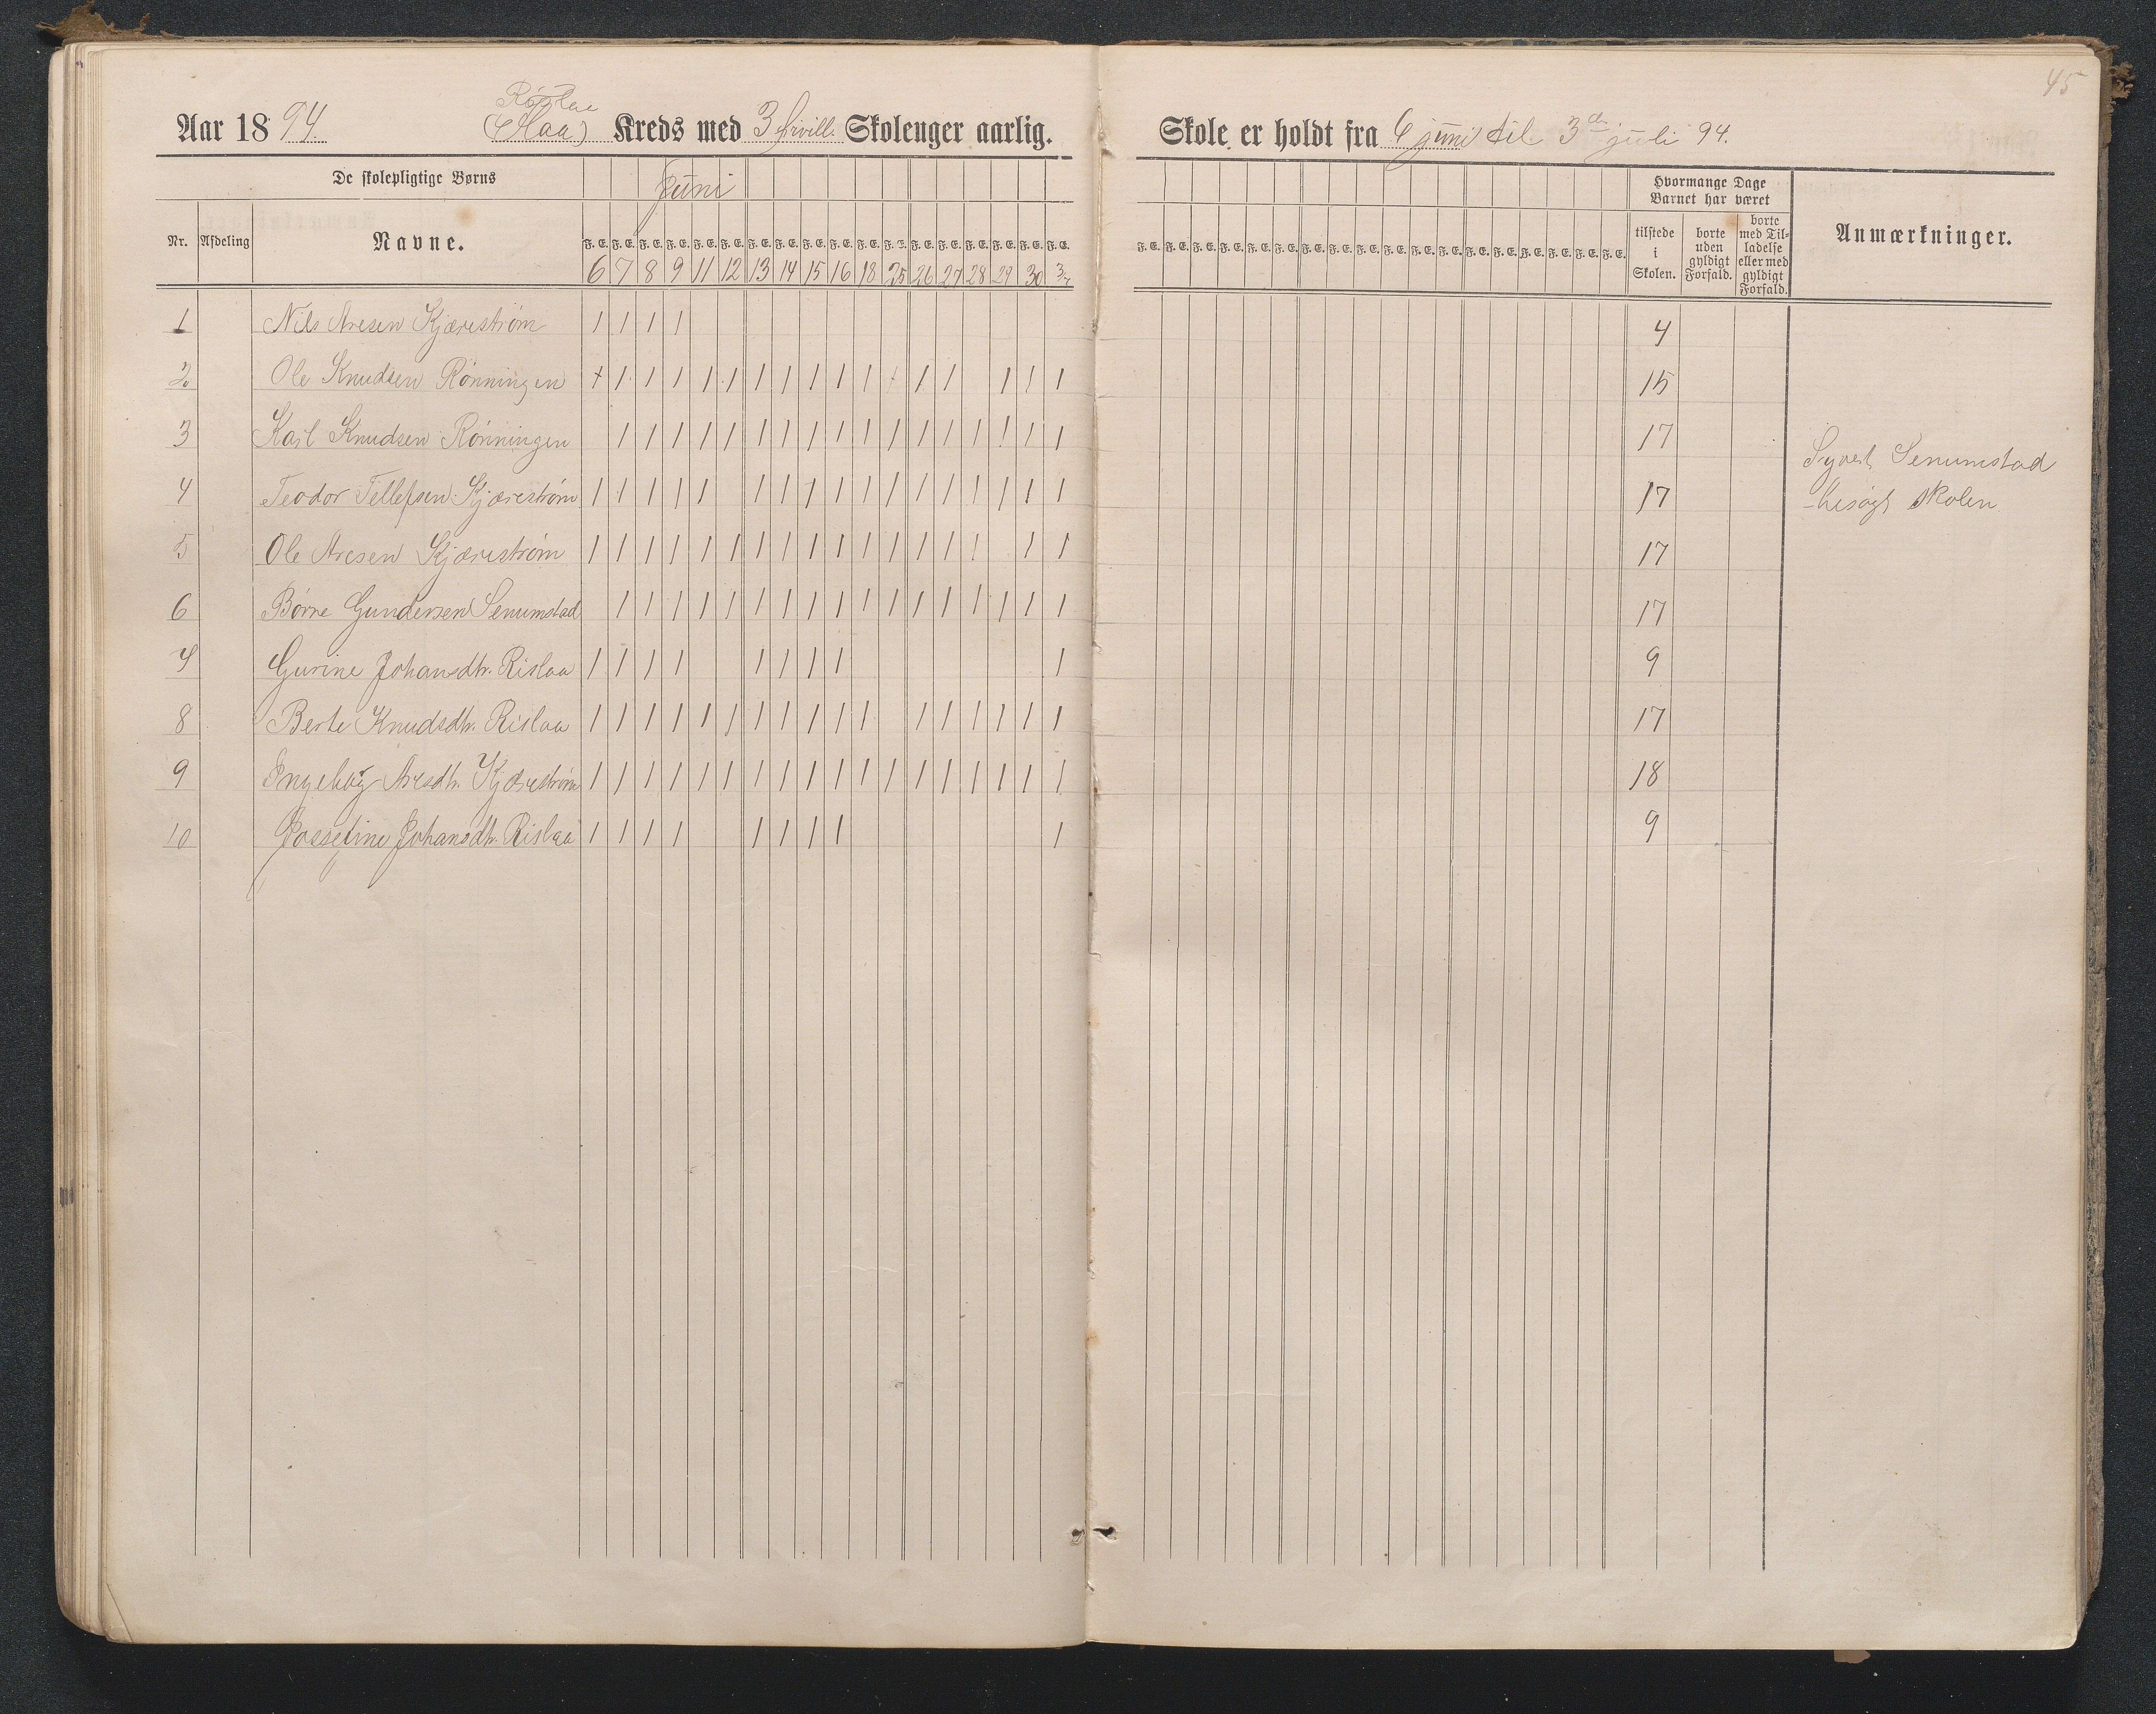 45
Aar 1894. (Flaa) Kreds med 3 frivill. Skoleuger aarlig.
Skole er holdt fra 6 juni til 3die juli 94.
De skolepligtige Børns
Juni
Hvormange Dage Barnet har været
Nr. Afdeling Navne. F. E. F. E. F. E. F. E. F. E. F. E. F. E. F. E. F. E. F. E. F. E. F. E. F. E. F. E. F. E. F. E. F. E. F. E.
F. E. F. E. F. E. F. E. F. E. F. E. F. E. F. E. F. E. F. E. F. E. F. E. F. E. F. E. F. E. F. E. F. E. F. E.
tilstede i Skolen. borte uden gyldigt Forfald. borte med Tilladelse eller med gyldigt Forfald. Anmærkninger.
6 7 8 9 11 12 13 14 15 16 18 25 26 27 28 29 30 3/7
1 Nils Aresen Kjærestrøm | | | | 4
2 Ole Knudsen Rønningen + | | | | | | | | | | | | | | | 15
3 Karl Knudsen Rønningen | | | | | | | | | | | | | | | | | 17
4 Teodor Tellefsen Kjærestrøm | | | | | | | | | | | | | | | | | 17
5 Ole Aresen Kjærestrøm | | | | | | | | | | | | | | | | | 17
6 Børre Gundersen Senumstad | | | | | | | | | | | | | | | | | 17
7 Gurine Johansdtr. Rislaa | | | | | | | | | 9
8 Berte Knudsdtr. Rislaa | | | | | | | | | | | | | | | | | 17
9 Ingeborg Aresdtr. Kjærestrøm | | | | | | | | | | | | | | | | | | 18
10 Jossefine Johansdtr. Rislaa | | | | | | | | | 9
Syvert Senumstad
besøgt skolen